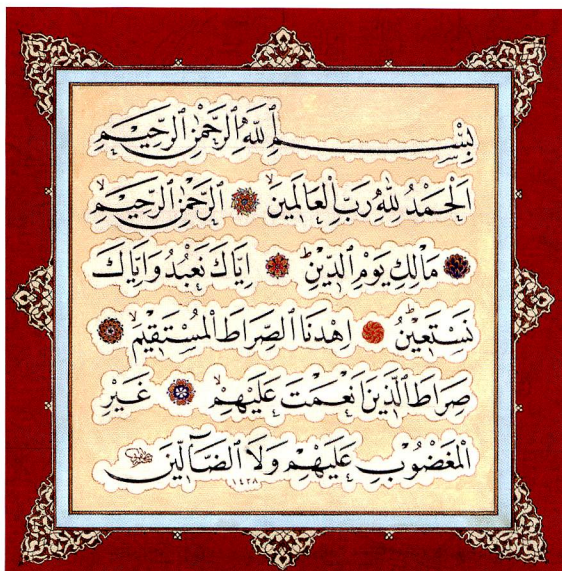 بِسْمِ اللّٰهِ الرَّحْمٰنِ الرَّحِيْمِ
اَلْحَمْدُ لِلّٰهِ رَبِّ الْعَالَمِينَ ۙ الرَّحْمٰنِ الرَّحِيمِ ۙ
مَالِكِ يَوْمِ الدِّينِ ۜ اِيَّاكَ نَعْبُدُ وَاِيَّاكَ
نَسْتَعِينُ ۜ اِهْدِنَا الصِّرَاطَ الْمُسْتَقِيمَ ۙ
صِرَاطَ الَّذِينَ اَنْعَمْتَ عَلَيْهِمْ ۙ غَيْرِ
الْمَغْضُوبِ عَلَيْهِمْ وَلَا الضَّٓالِّينَ
١٤٢٨